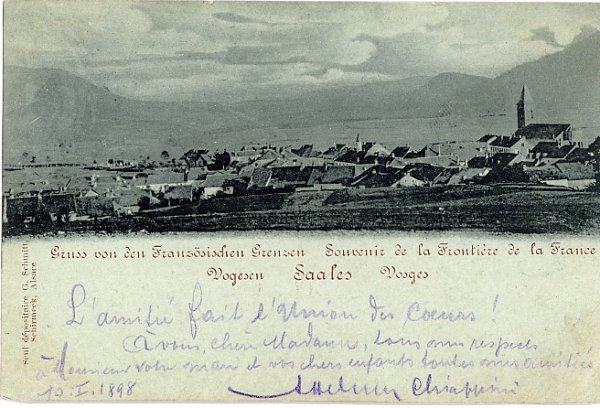 Gruss von den Französischen Grenzen Souvenir de la Frontière de la France
Vogesen Saales Vosges
Seul dépositaire G. Schmitt,
Schirmeck, Alsace
L'amitié fait l'Union des Coeurs !
A vous, chère Madame, tous mes respects
à Monsieur votre mari et vos chers enfants toutes mes amitiés
10.I.1898